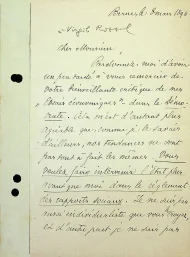 Berne, le 8 mars 1896
Cher Monsieur,
Pardonnez-moi d'avoir
un peu tardé à vous remercier de
votre bienveillante critique de mes
dans le
m'est d'autant plus
agréable que, comme je le savais
d'ailleurs, nos tendances ne sont
pas tout à fait les mêmes. Vous
voulez faire intervenir l'État plus
avant que moi dans le règlement
des rapports sociaux. Je ne suis pas
non individualiste que vous croyez,
et d'autre part je ne suis pas